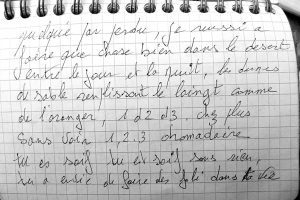 quelque par perdu, je reussi a
faire que chose bien dans le desert
entre le jour et la nuit, les dunes
de sable remplissant le comme
de l'oranger, 1 d2 d3. chez plus
sans voir 1, 2. 3 dromadaire.
tu es soif tu es soif sans rien,
tu a envie de faire des joli dans ta vie